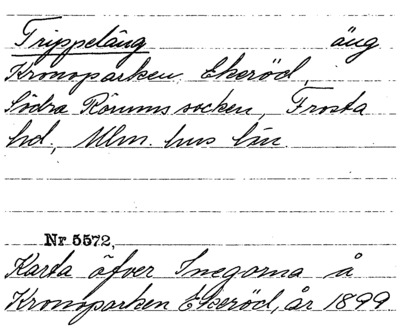 Trippeläng äng
Kronoparken Ekeröd,
Södra Rörums socken, Frosta
hd., Mlm. hus län.
Nr 5572,
Karta öfver Inegorna å
Kronoparken Ekeröd, år 1899